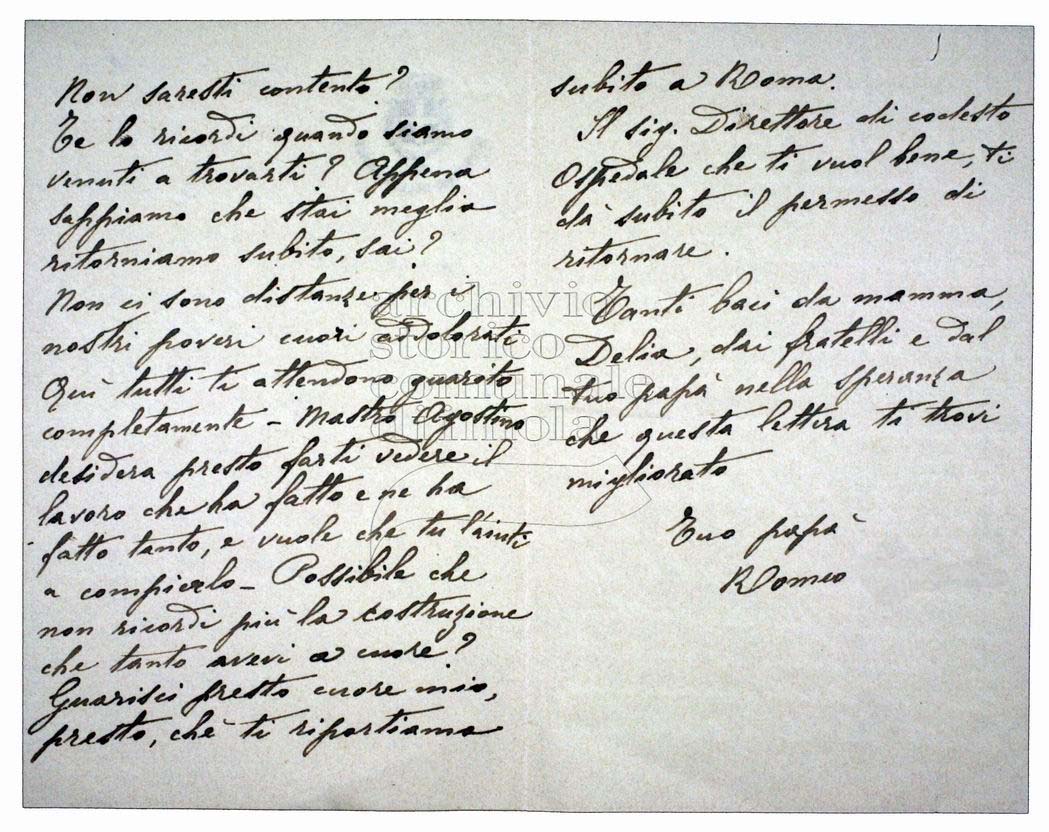 Non saresti contento?
Te lo ricordi quando siamo
venuti a trovarti? Appena
sappiamo che stai meglio
ritorniamo subito, sai?
Non ci sono distanze per i
nostri poveri cuori addolorati
Quì tutti ti attendono guarito
completamente - Mastro Agostino
desidera presto farti vedere il
lavoro che ha fatto e ne ha
fatto tanto, e vuole che tu l'aiuti
a compierlo - Possibile che
non ricordi più la costruzione
che tanto avevi a cuore?
Guarisci presto cuore mio,
presto, chè ti riportiamo
subito a Roma.
Il sig. Direttore di codesto
Ospedale che ti vuol bene, ti
dà subito il permesso di
ritornare.
Tanti baci da mamma,
Delia, dai fratelli e dal
tuo papà nella speranza
che questa lettera ti trovi
migliorato
Tuo papà
Romeo
archivio
storico
comunale
di imola